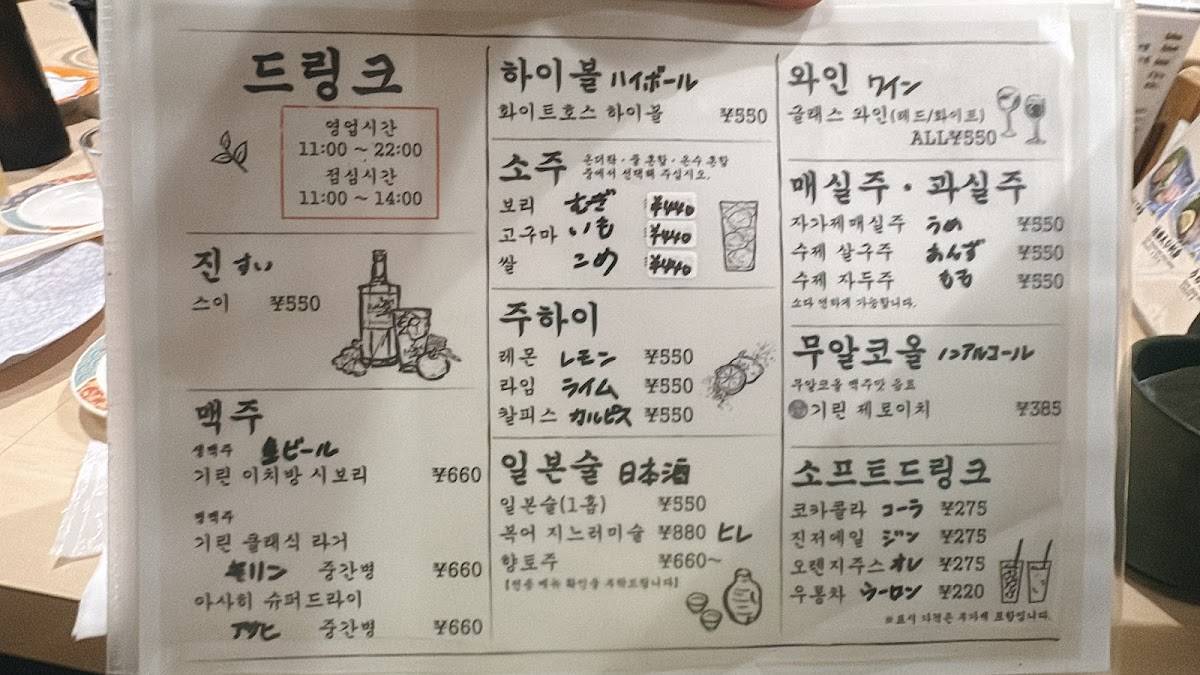 드링크
영업시간
11:00 ~ 22:00
점심시간
11:00 ~ 14:00
진 すい
스이 ¥550
맥주
생맥주 生ビール
기린 이치방 시보리 ¥660
병맥주
기린 클래식 라거
キリン 중간병 ¥660
아사히 슈퍼드라이
アサヒ 중간병 ¥660
하이볼 ハイボール
화이트호스 하이볼 ¥550
소주 온더락·물 혼합·온수 혼합
중에서 선택해 주십시오.
보리 むぎ ¥440
고구마 いも ¥440
쌀 こめ ¥440
주하이
레몬 レモン ¥550
라임 ライム ¥550
칼피스 カルピス ¥550
일본술 日本酒
일본술(1홉) ¥550
복어 지느러미술 ¥880 ヒレ
향토주 ¥660~
【전용 메뉴 확인을 부탁드립니다】
와인 ワイン
글래스 와인(레드/화이트)
ALL¥550
매실주·과실주
자가제매실주 うめ ¥550
수제 살구주 あんず ¥550
수제 자두주 もも ¥550
소다 변하게 가능합니다.
무알코올 ノンアルコール
무알코올 맥주맛 음료
기린 제로이치 ¥385
소프트드링크
코카콜라 コーラ ¥275
진저에일 ジン ¥275
오렌지주스 オレ ¥275
우롱차 ウーロン ¥220
※표시 가격은 부가세 포함입니다.